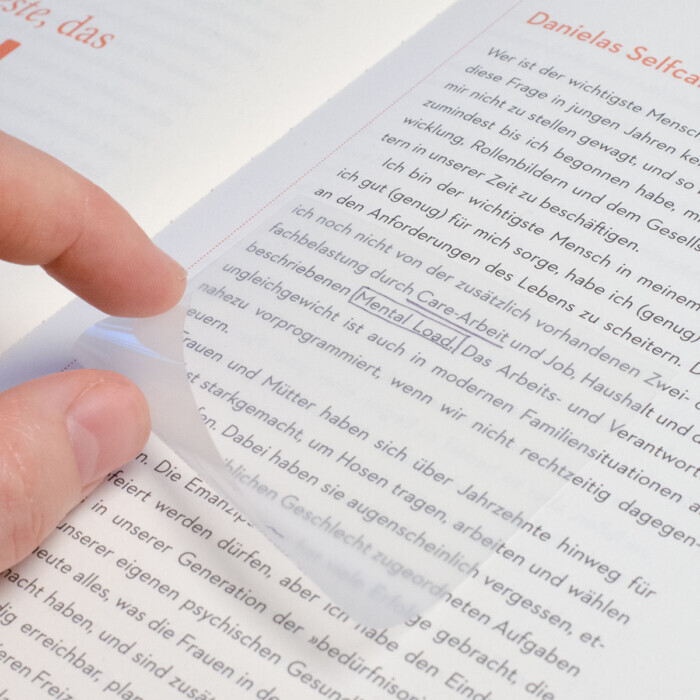 ste, das
Danielas Selfca
Wer ist der wichtigste Mensch
diese Frage in jungen Jahren ke
mir nicht zu stellen gewagt, und so
zumindest bis ich begonnen habe, m
wicklung, Rollenbildern und dem Gesells
tern in unserer Zeit zu beschäftigen.
Ich bin der wichtigste Mensch in meinem
ich gut (genug) für mich sorge, habe ich (genug)
an den Anforderungen des Lebens zu scheitern. D
ich noch nicht von der zusätzlich vorhandenen Zwei-
fachbelastung durch Care-Arbeit und Job, Haushalt und
beschriebenen Mental Load. Das Arbeits- und Verantwor
ungleichgewicht ist auch in modernen Familiensituationen a
nahezu vorprogrammiert, wenn wir nicht rechtzeitig dagegen-
euern.
rauen und Mütter haben sich über Jahrzehnte hinweg für
st starkgemacht, um Hosen tragen, arbeiten und wählen
fen. Dabei haben sie augenscheinlich vergessen, et-
blichen Geschlecht zugeordneten Aufgaben
n. Die Emanzip ge gebracht, die
ifeiert werden dürfen, aber ich habe den Ein
in unserer Generation der »bedürfnisor
unserer eigenen psychischen Gesun
heute alles, was die Frauen in de
macht haben, und sind zusä
dig erreichbar, pla
eren Freiz